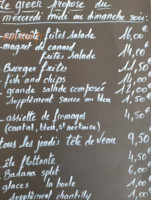 Le green propose du
mercredi midi au dimanche soir:
- entrecote frites salade 16,00
- magret de canard 14,00
frites salade
- Burger frites 11,50
- fish and chips 14,00
- grande salade composée 12,00
supplément sauce au bleu 1,50
- assiette de fromages 4,50
(cantal, bleu, st nectaire)
tous les jeudis tête de veau 9,50
- île flottante 4,50
- Banana split 6,00
- glaces la boule 1,00
supplément chantilly 1,00